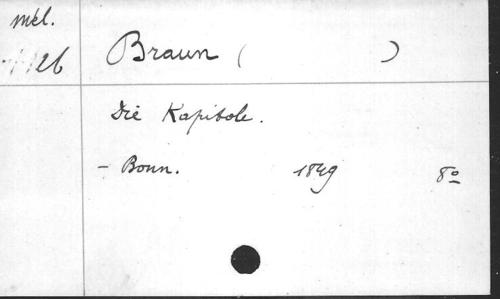 mél.
26
Braun (        )
Die Kapitole.
- Bonn. 1849 8º